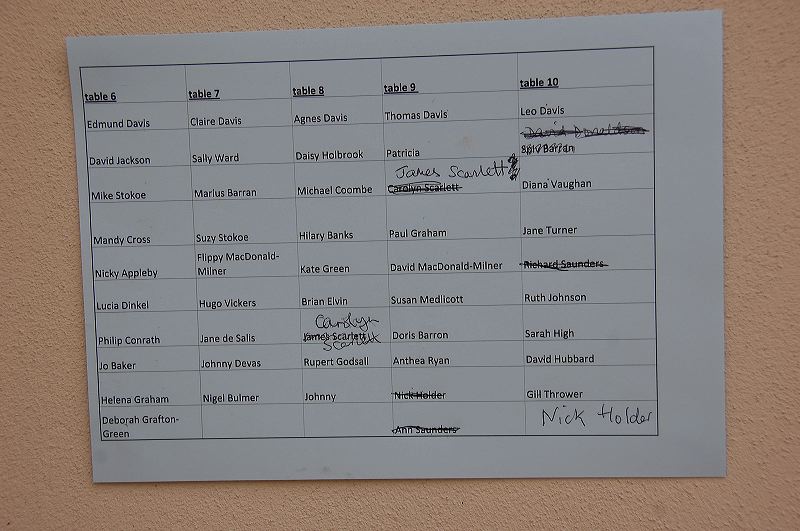 table 6 table 7 table 8 table 9 table 10
Edmund Davis Claire Davis Agnes Davis Thomas Davis Leo Davis
David Donaldson
David Jackson Sally Ward Daisy Holbrook Patricia Barran
James Scarlett
Mike Stokoe Marius Barran Michael Coombe Carolyn Scarlett Diana Vaughan
Mandy Cross Suzy Stokoe Hilary Banks Paul Graham Jane Turner
Flippy MacDonald-
Nicky Appleby Milner Kate Green David MacDonald-Milner Richard Saunders
Lucia Dinkel Hugo Vickers Brian Elvin Susan Medlicott Ruth Johnson
Carolyn
Philip Conrath Jane de Salis James Scarlett Doris Barron Sarah High
Scarlett
Jo Baker Johnny Devas Rupert Godsall Anthea Ryan David Hubbard
Helena Graham Nigel Bulmer Johnny Nick Holder Gill Thrower
Deborah Grafton-
Green Ann Saunders Nick Holder